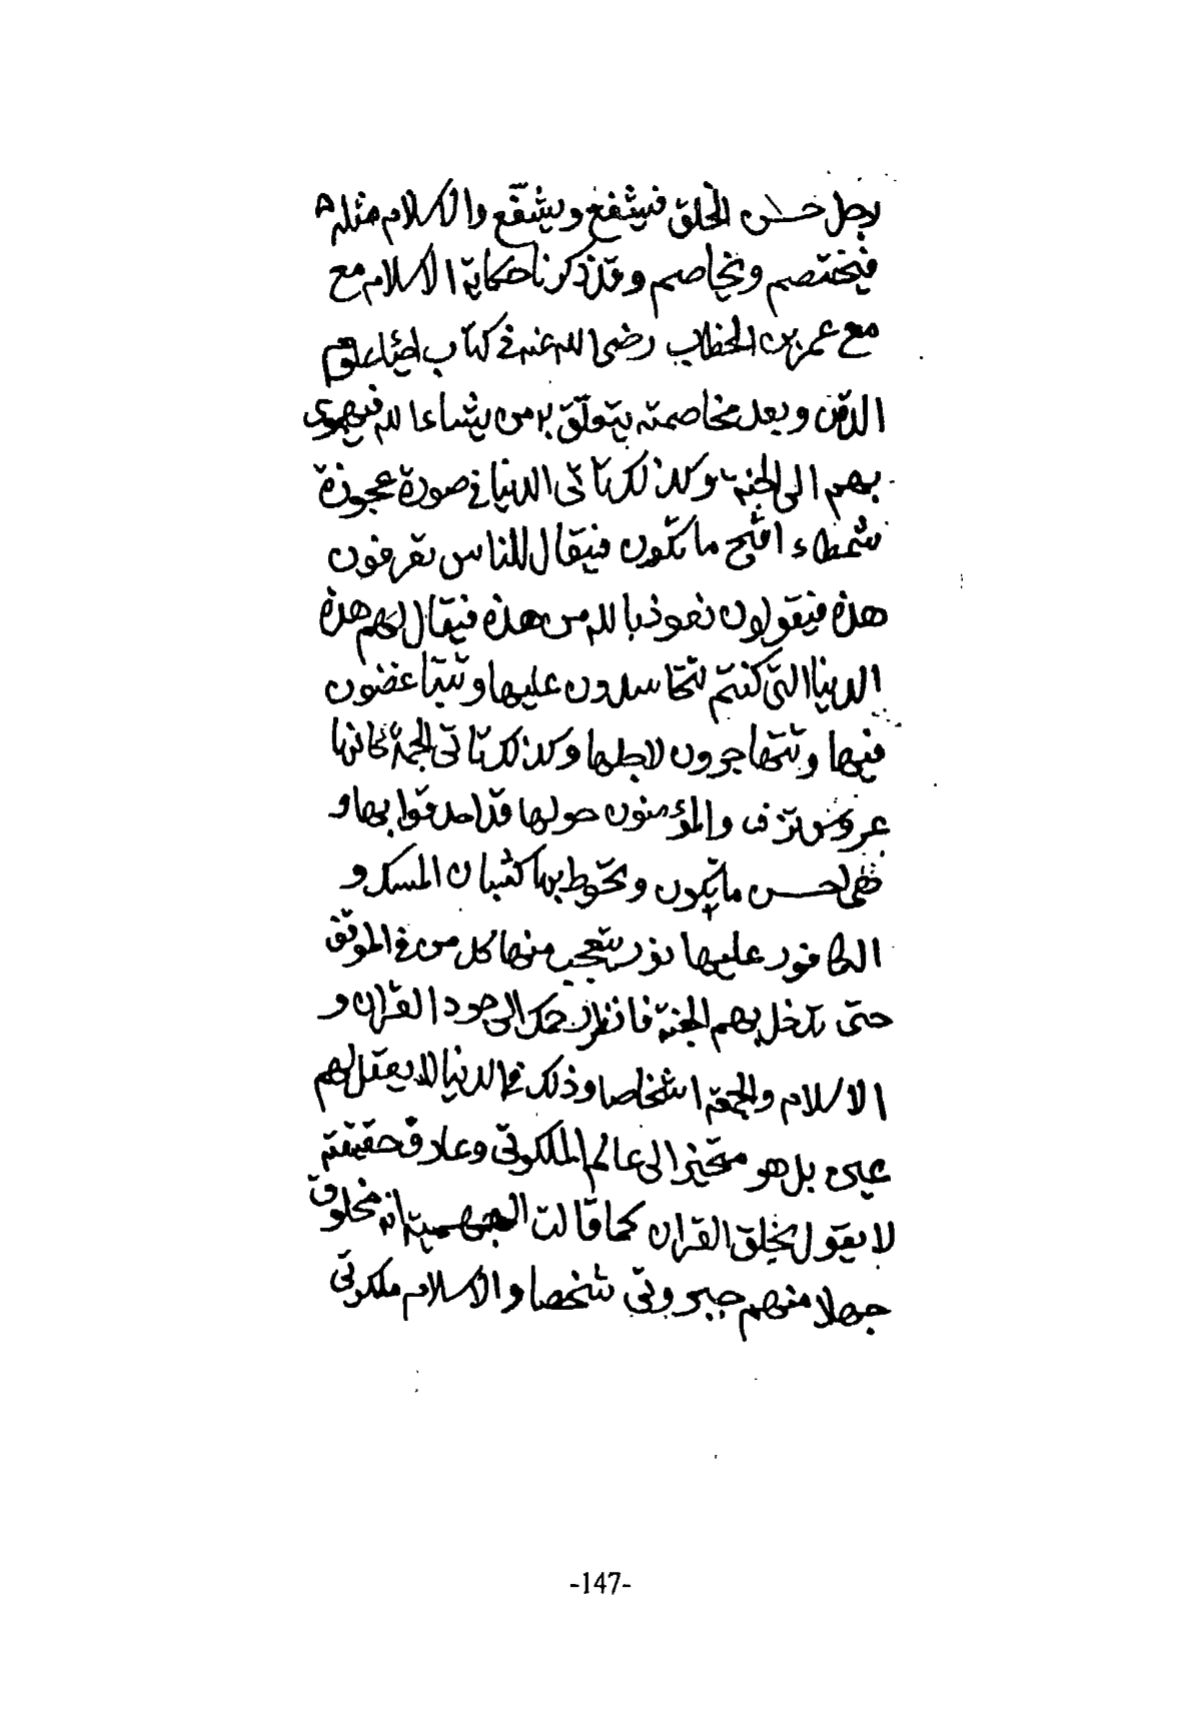 رجل حسن الخلق فيشفع ويشفّع والاسلام مثله
فيختصم ويخاصم وقد ذكرنا حكاية الاسلام مع
مع عمر بن الخطاب رضى الله عنه فى كتاب احياء علوم
الدين وبعد مخاصمته يتعلّق به من يشاء الله فيهوى
بهم الى الجنة وكذلك تاتى الدنيا فى صورة عجوزة
شمطاء اقبح ما تكون فيقال للناس تعرفون
هذه فيقولون نعوذ بالله من هذه فيقال لهم هذه
الدنيا التى كنتم تتحاسدون عليها وتتباغضون
فيها وتتهاجرون لاجلها وكذلك تاتى الجمعة كانها
عروس تزف والمؤمنون حولها قد احدقوا بها و
هى احسن ما تكون وتحوط بها كثبان المسك و
الكافور عليها نور يتعجب منها كل من فى الموقف
حتى تدخل بهم الجنة فانظر رحمك الى جود القران و
الاسلام والجمعة اشخاصا وذلك فى الدنيا لا يعقل لهم
عين بل هو متحيز الى عالم الملكوتى وعارف حقيقته
لا يقول بخلق القران كما قالت الجهمية انه مخلوق
جهلا منهم جبروتى شخصا والاسلام ملكوتى
-147-